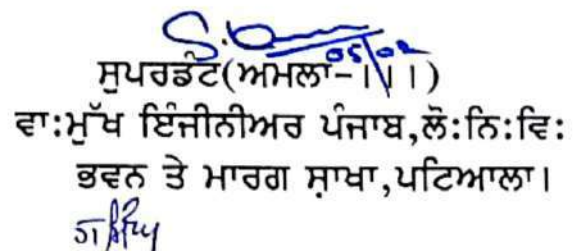 05/02
ਸੁਪਰਡੰਟ(ਅਮਲਾ-।।।)
ਵਾ:ਮੁੱਖ ਇੰਜੀਨੀਅਰ ਪੰਜਾਬ,ਲੋ:ਨਿ:ਵਿ:
ਭਵਨ ਤੇ ਮਾਰਗ ਸ਼ਾਖਾ,ਪਟਿਆਲਾ।